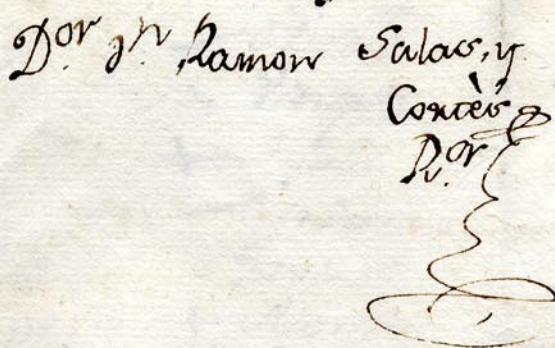 Dor. Dn. Ramon Salas, y
Cortès
Ror.